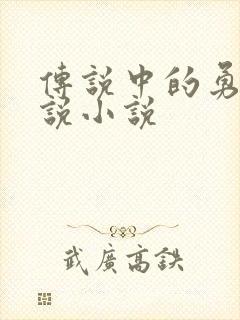 傳說中的勇
說小說
武廣高鉄